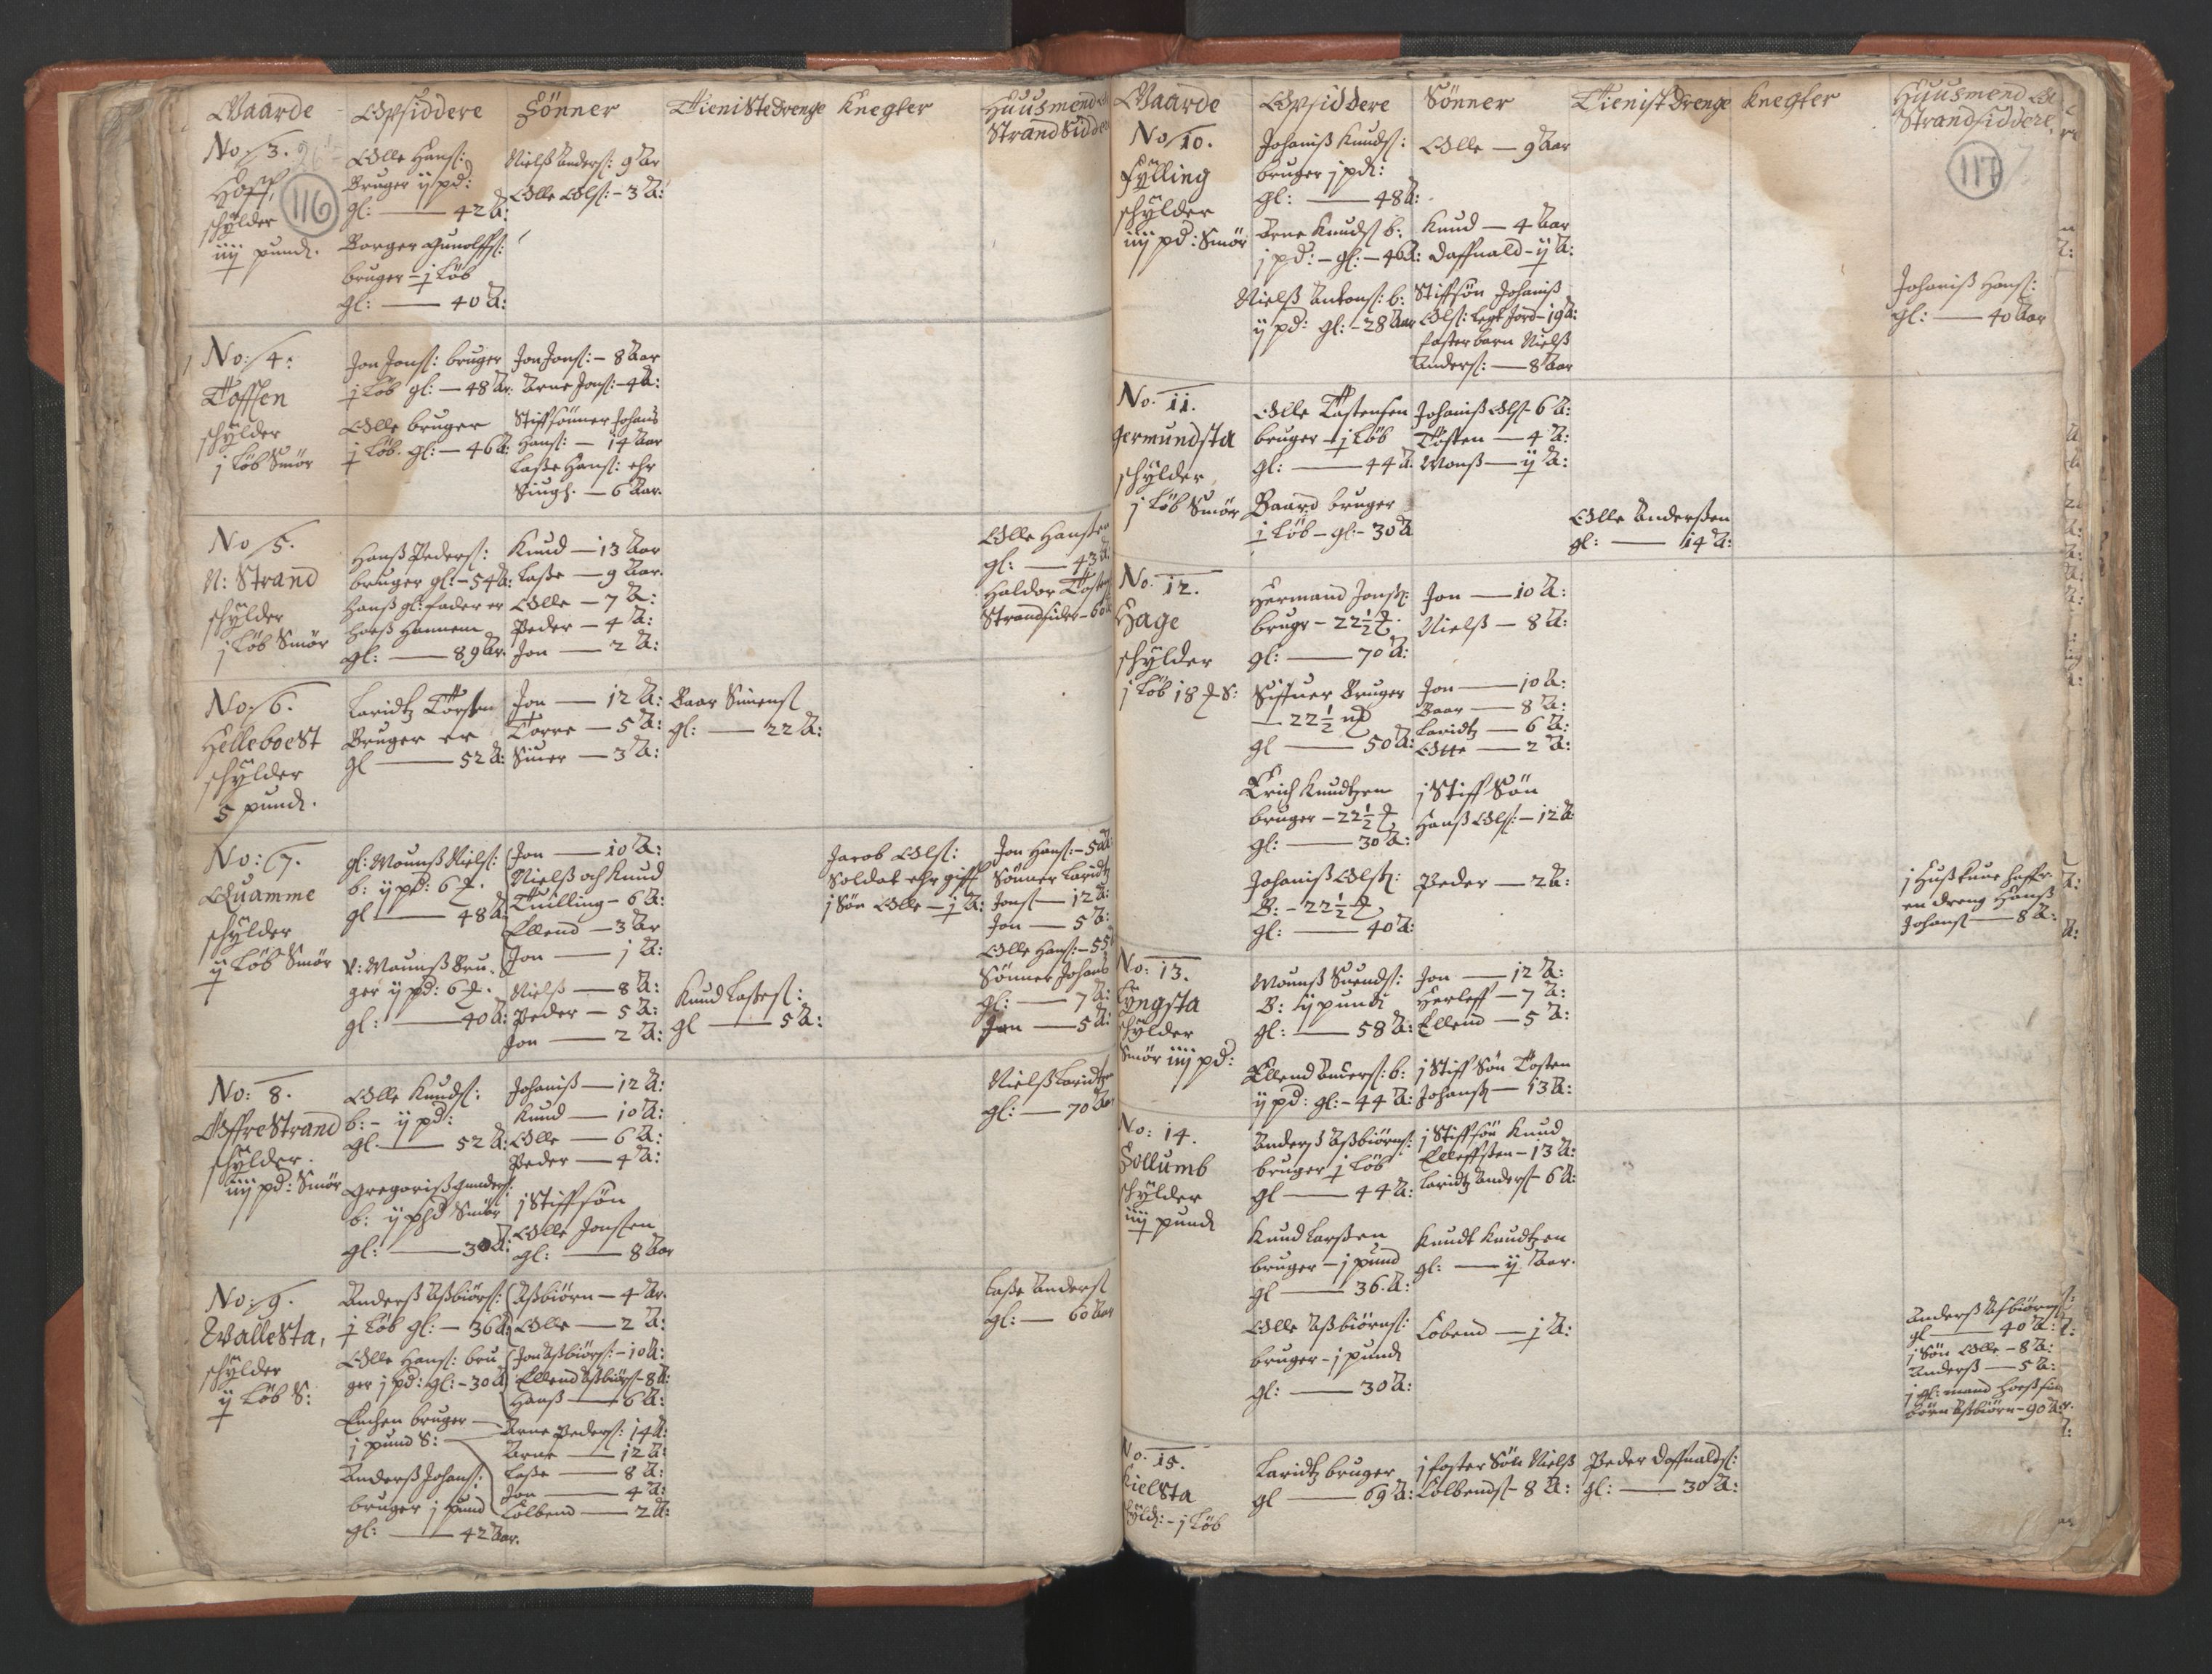 Gaarde
Opsiddere
Sönner
Tienistedrenge
Knegter
Huusmend
Strandsidder
No. 3.
Hoff,
schÿlder
iiij pund.
116
Olle Hanss:
Bruger ij pd:
gl: — 42 A:
Borger Gunolffs:
bruger – j Löb
gl: — 40 A:
Nielß Anderss: 9 Aar
Olle Olss: – 3 A:
No: 4:
Tofften
schÿlder
j Löb Smör
Jon Jonss: bruger
j Löb gl: – 48 Ar:
Olle bruger
j Löb. gl: – 46 A:
Jon Jonss: – 8 Aar
Arne Jonss: – 4 A:
Stiffsönner Johans
Hanss: – 14 Aar
Laße Hanss: ehr
Siugh. – 6 Aar.
No 5.
N: Strand
schÿlder
j Löb Smör
Hanß Peders:
bruger gl: – 54 A:
Hanß gl: fader er
hoeß Hannem
gl: — 89 Ar.
Knud – 13 Aar
Laße – 9 Aar.
Olle – 7 A:
Peder – 4 A:
Jon – 2 A:
Olle Hanßen
gl: — 43 A:
Haldor
Strandsider – 60
No: 6.
Helleboest
schÿlder
5 pund.
Laridtz Torsten
Bruger er
gl — 52 A:
Jon — 12 A:
Torre – 5 A:
Siuer – 3 A:
Baar Simenss
gl: — 22 A:
No: 7.
Quamme
schÿlder
ij Löb Smör
gl: Mounß Nielss:
b: ij pd: 6
gl — 48 A:
V: Mounß Bru-
ger ij pd: 6
gl: — 40 A:
Jon — 10 A:
Nielß och Knud
Tuilling – 6 A:
Ellend – 3 Ar
Jon — j A:
Nielß – 8 A:
Peder – 5 A:
Jon — 2 A:
Knud Laßess:
gl — 5 A:
Jacob Olss:
Soldat ehr gifft
j Sön Olle – j A:
Jon Hanss: – 50 A
Sönner Laridtz
Jonss — 12 A:
Jon — 5 A:
Olle Hanss: – 55
Sönner Johans
gl: — 7 A:
Jon — 5 A:
No: 8.
ÖffreStrand
schÿlder.
iiij pd: Smör
Olle Knuds:
b: – ij pd:
gl. — 52 A:
Gregoriß Gunders:
b: ij phd Smör
gl: — 30 A:
Johaniß – 12 A:
Knud – 10 A:
Olle – 6 A:
Peder – 4 A:
j Stiffsön
Olle Jonssen
gl: — 8 Aar
Nielß Laridtz
gl: — 70 Aar
No: 9.
Wallesta,
schÿlder
ij Löb S:
Anderß Aßbiörs:
j Löb gl: – 36 A:
Olle Hanss: bru
ger j pd: gl: – 30 A
Enchen bruger —
j pund S:
Anderß Johanss:
bruger j pund
gl: — 42 Aar.
Aßbiörn – 4 Ar.
Olle — 2 A:
Jon Aßbiörs: – 10 A:
Ellend Aßbiörs – 8 A:
Hanß — 6 A:
Arne Peders: 14 A:
Arne — 12 A:
Laße — 8 A:
Jon — 4 A:
Colbend — 2 A:
Laße Anderss
gl: — 60 Aar
Gaarde
Opsiddere
Sönner
Tienistdrenge
Knegter
Huusmend
Strandsiddere
117
No 10.
Fylling
schÿlder
iiij pd: Smör
Johaniß Knuds:
bruger j pd:
gl: — 48 A:
Arne Knuds b:
j pd: – gl: – 46 A:
Nielß Antonss: b:
ij pd: gl: – 28 Aar
Olle – 9 Aar
Knud – 4 Aar
Daffuald – ij A:
Stiffsön Johaniß
Olss: legt Jord – 19 A:
fosterbarn Nielß
Anderss: — 8 Aar
Johaniß Hanss:
gl: — 40 Aar
No. 11.
Germundsta
schÿlder
j Löb Smör
Olle Tostensen
bruger – j Löb
gl: — 44 A.
Baard bruger
j Löb – gl: – 30 A
Johaniß Olss – 6 A:
Tosten – 4 A:
Monß – ij A:
Olle Anderßen
gl: — 14 A:
No. 12.
Hage
schÿlder
j Löb 18 S:
Hermand Jonss:
brugr – 22 1/2
gl: — 70 A:
Siffuer Bruger
— 22 1/2
gl — 50 A:
Erich Knudtzen
bruger – 22 1/2
gl: — 30 A:
Johaniß Olss:
B: – 22 1/2
gl: — 40 A:
Jon — 10 A:
Nielß – 8 A:
Jon — 10 A:
Baar — 8 A:
Laridtz – 6 A:
Otte — 2 A:
j Stiff Sön
Hanß Olss: – 12 A:
Peder – 2 A:
en dreng Hanß
Johanss — 8 A:
No: 13.
Lyngsta
schÿlder
Smör iiij pd:
Mounß Suends:
B: ij pund
gl: — 58 A:
Ellend Anderss: b:
ij pd: gl: – 44 A:
Jon — 12 A:
Herleff – 7 A:
Ellend – 5 A:
j Stiff Sön Tosten
Johanss – 13 A:
No: 14.
Sollumb
schÿlder
iiij pund
Anderß Aßbiörns:
bruger j Löb
gl — 44 A:
Knud Larßen
bruger – j pund
gl — 36. A:
Olle Aßbiörns:
bruger – j pund
gl: — 30 A:
j Stiffsön Knud
Elleffssen – 13 A:
Laridtz Anderss – 6 A:
Knudt Knudtzen
gl: — ij Aar.
Colbend – j A:
Anderß Aßbiörns
gl — 40 A:
j Sön Olle – 8 A:
Anderß — 5 A:
j gl: mand hoeß sin
börn Aßbiörn – 90 A
No. 15.
Kielsta
schÿld: – j Löb
Laridtz bruger
gl — 69 A:
j foster Sön Nielß
Colbends – 8 A:
Peder Daffualds:
gl: — 30 A: